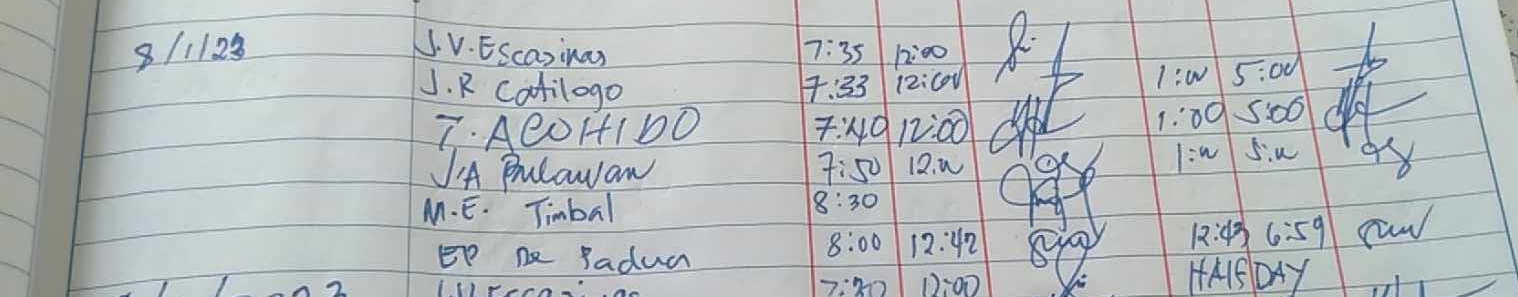 8/1/23 J.V. Escasinas 7:35 12:00
J.R Catilogo 7:33 12:00 1:00 5:00
T. ACOHIDO 7:40 12:00 1:00 5:00
J.A Bulawan 7:50 12:00 1:00 5:00
M.E. Timbal 8:30
EP De Padua 8:00 12:42 12:43 6:59
7:30 12:00 HALF DAY